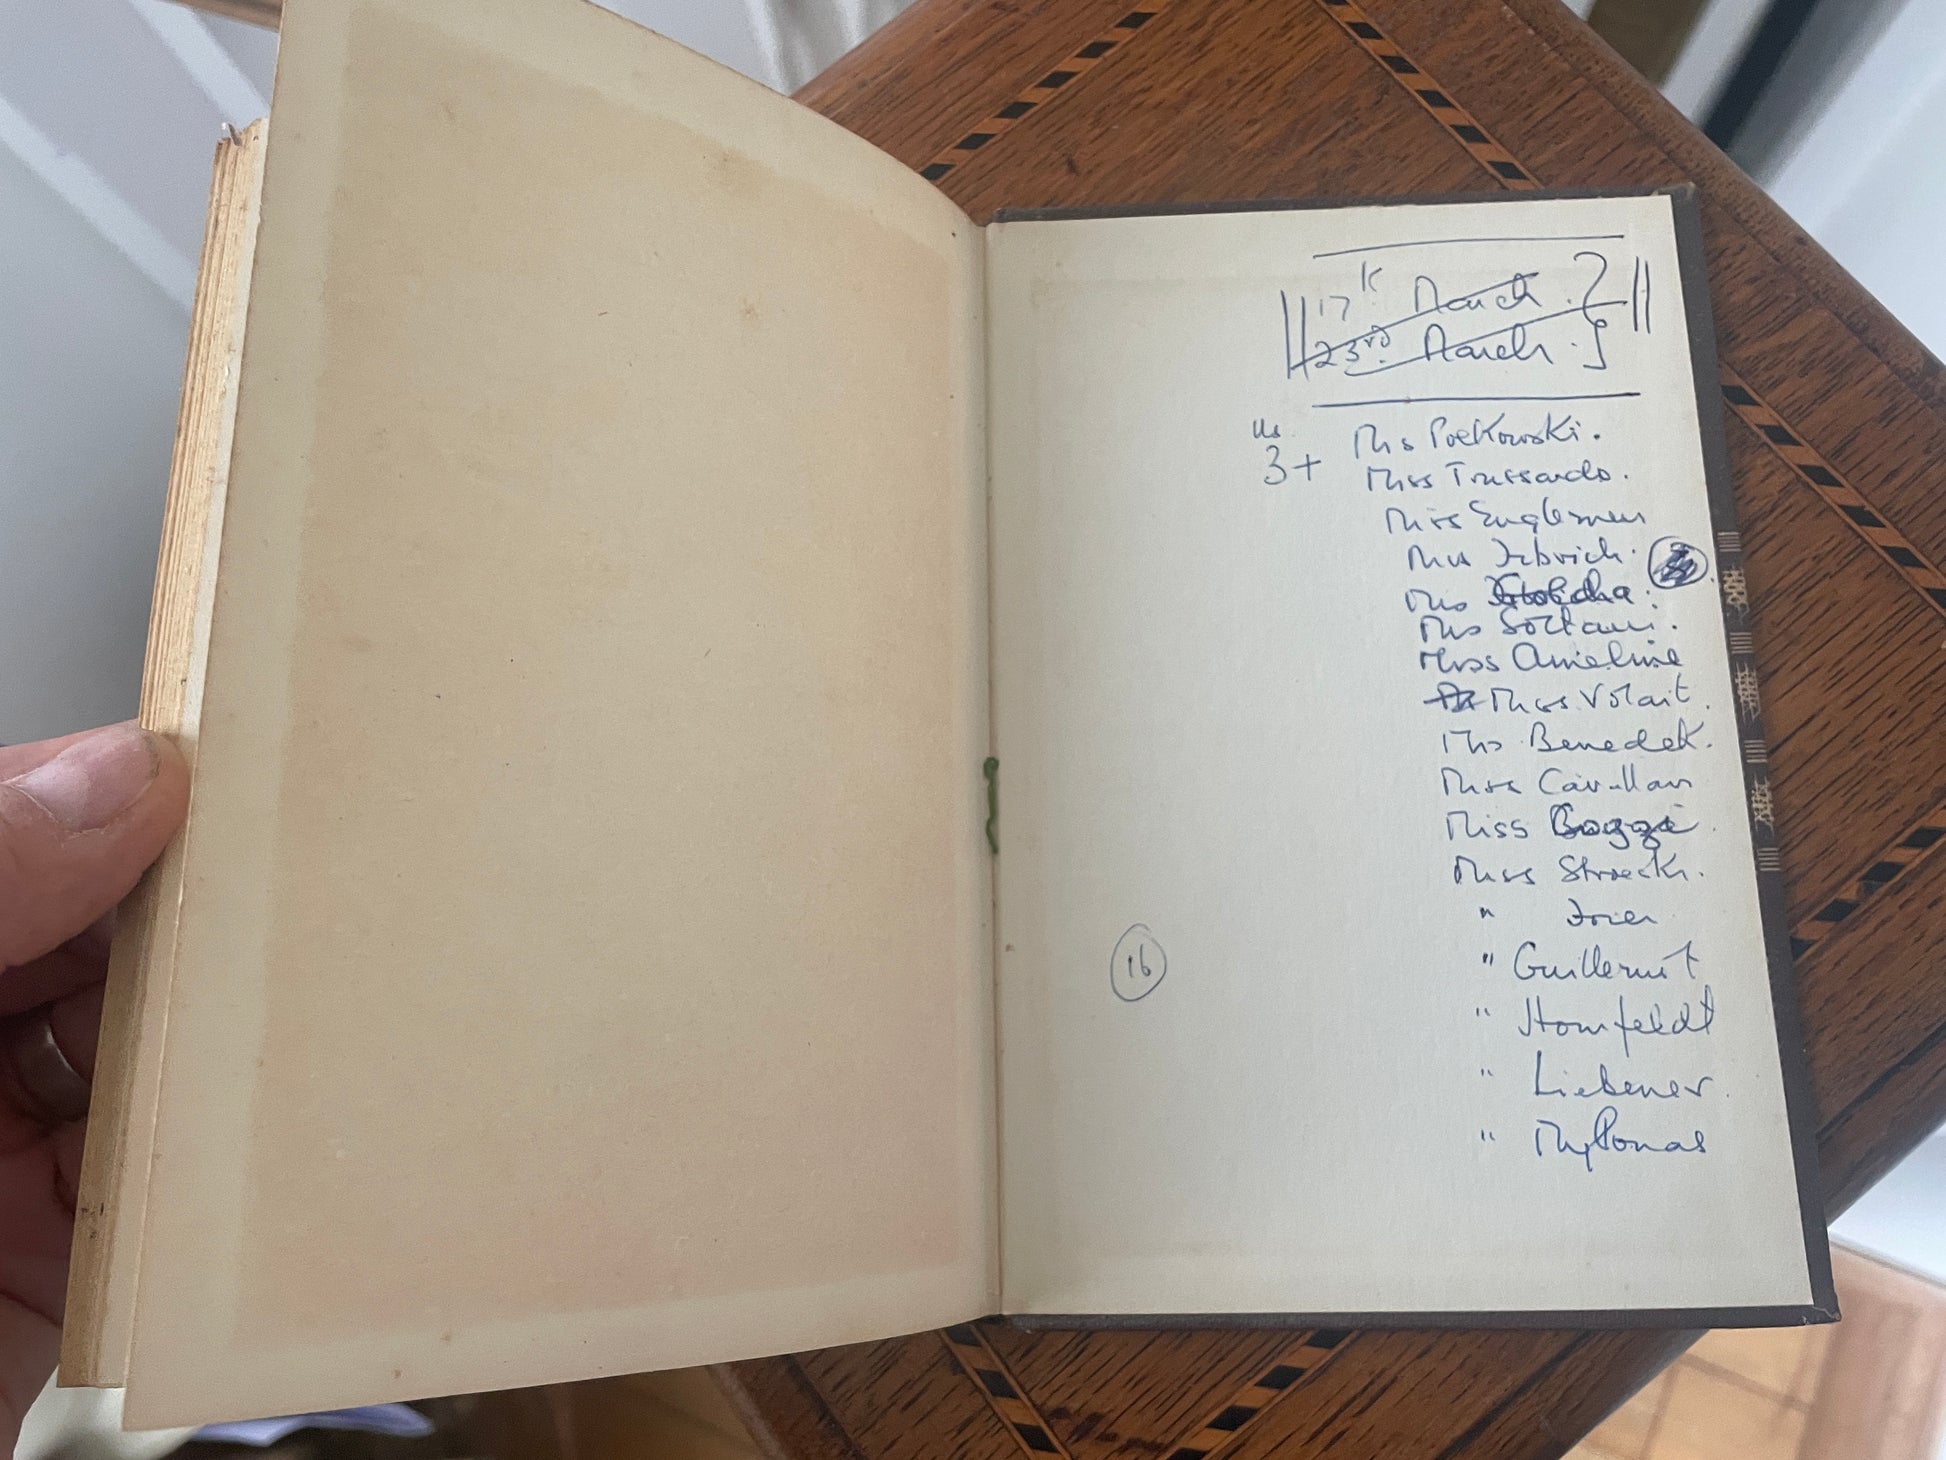 17th March.
23rd March.
Us
3 + Mrs Polkowski.
Miss Trussardo.
Miss Englemen
Mrs
Mrs
Mrs Soltani.
Miss Ameline
Miss Volait.
Mrs Benedek.
Miss Cavillan
Miss Boggi.
Miss Stroeck.
"
" Guillermit
" Homfeldt
" Liebener.
" Mylonas
16